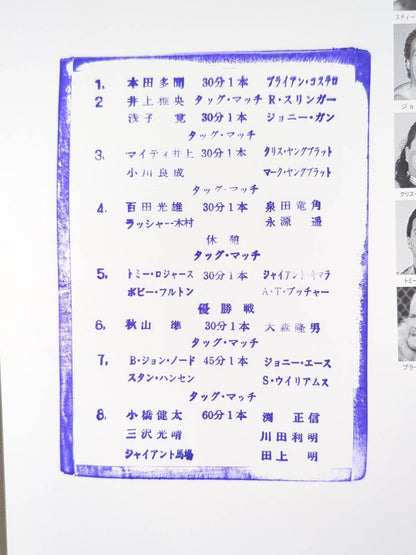 1. 本田多聞 30分1本 ブライアン・コステロ
2 井上雅央 タッグ・マッチ R・スリンガー
浅子 覚 30分1本 ジョニー・ガン
タッグ・マッチ
3. マイティ井上 30分1本 クリス・ヤングブラット
小川良成 マーク・ヤングブラット
タッグ・マッチ
4. 百田光雄 30分1本 泉田竜角
ラッシャー木村 永源 遥
休憩
タッグ・マッチ
5. トミー・ロジャース 30分1本 ジャイアント・キマラ
ボビー・フルトン A・T・ブッチャー
優勝戦
6. 秋山 準 30分1本 大森隆男
タッグ・マッチ
7. B・ジョン・ノード 45分1本 ジョニー・エース
スタン・ハンセン S・ウイリアムス
タッグ・マッチ
8. 小橋健太 60分1本 渕 正信
三沢光晴 川田利明
ジャイアント馬場 田上 明
スティー
ジョ
クリス・
トミー
ブラ